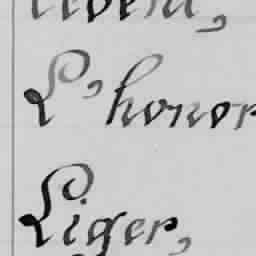 L'honor
Liger,